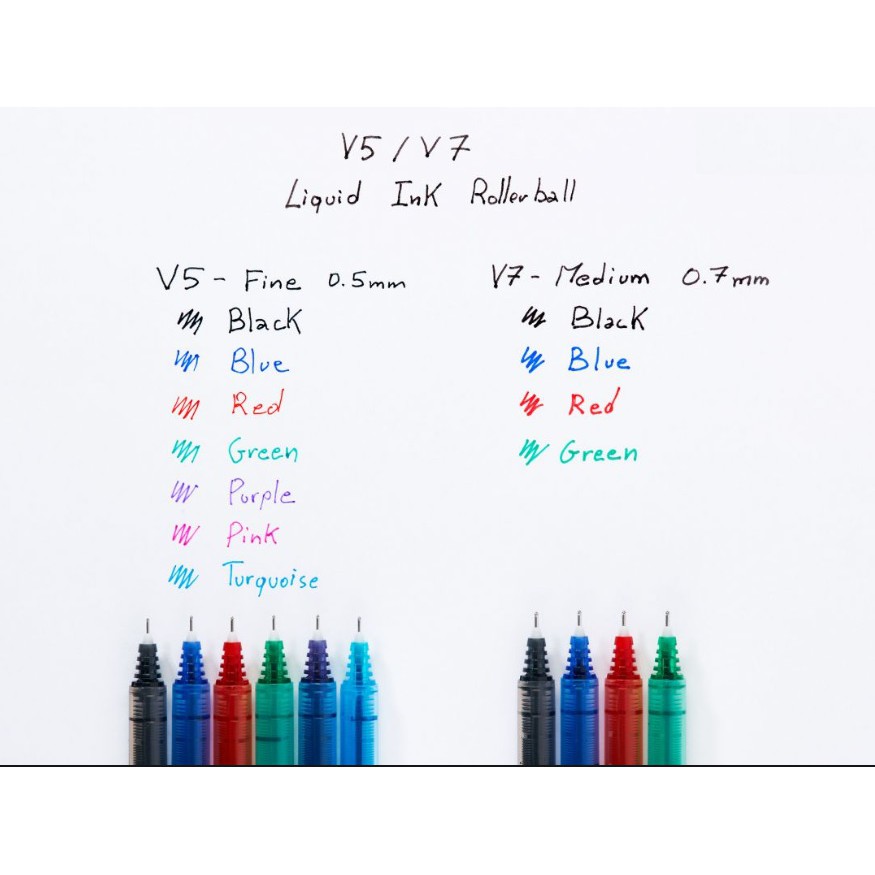 V5 / V7
Liquid Ink Rollerball
V5 - Fine 0.5mm
Black
Blue
Red
Green
Purple
Pink
Turquoise
V7 - Medium 0.7mm
Black
Blue
Red
Green